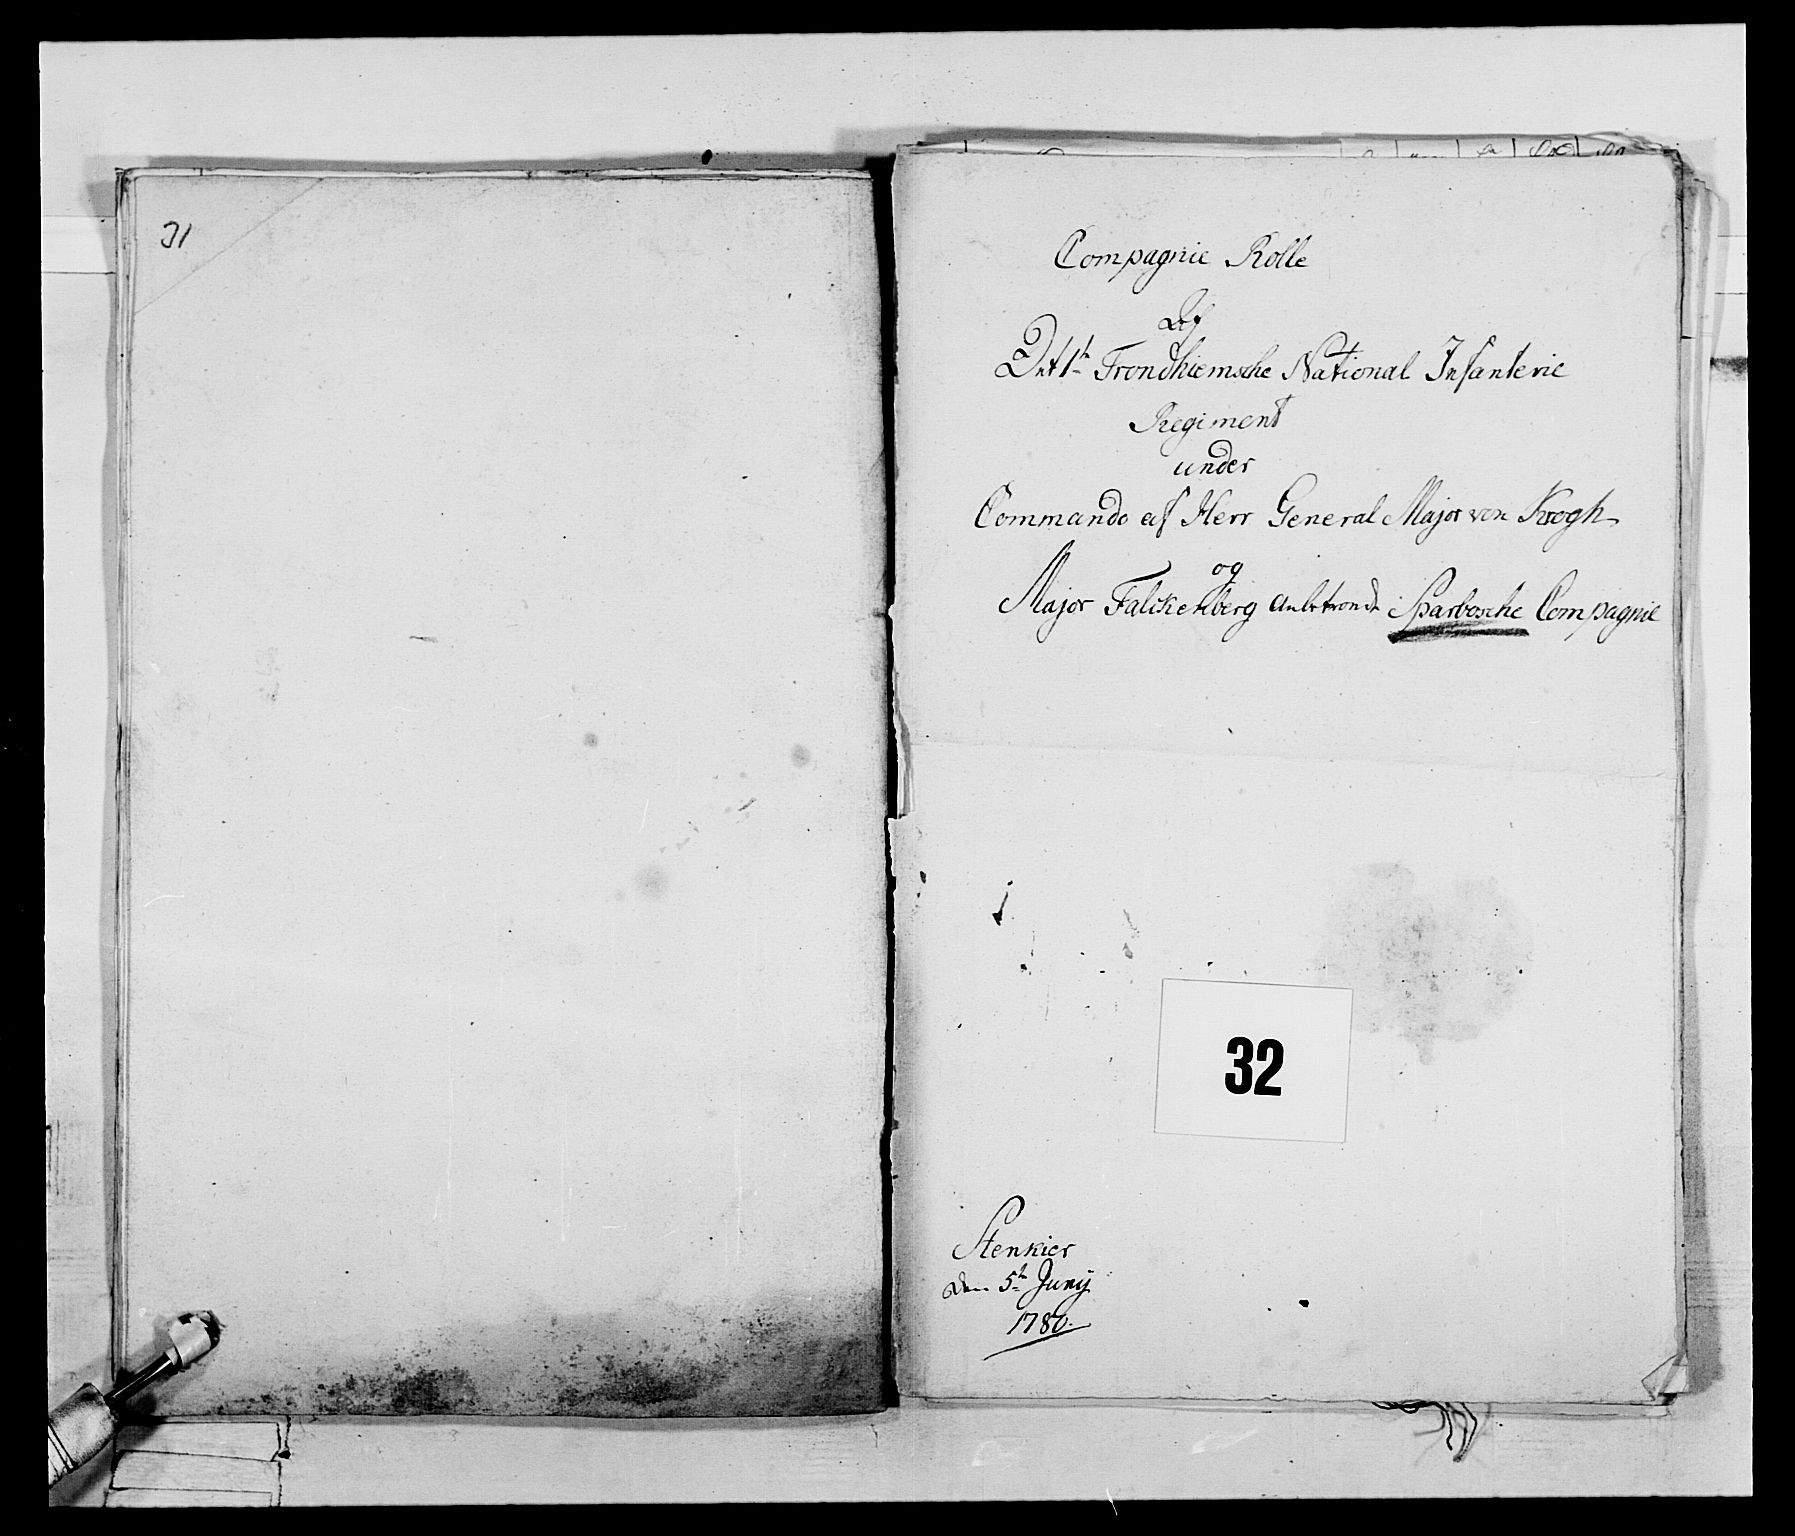 31
Compagnie Rolle
Af
Det 1te Trondhiemsche National Infanterie
Regiment
under
Commando af Herr General Major von Krogh
og
Major Falckenberg anbetroede Sparbosche Compagnie
32
Stenkier
den 5te Juny
1780.